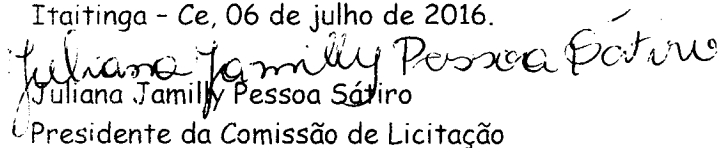 Itaitinga - Ce, 06 de julho de 2016.
Juliana Jamilly Pessoa Sátiro
Juliana Jamilly Pessoa Sátiro
Presidente da Comissão de Licitação